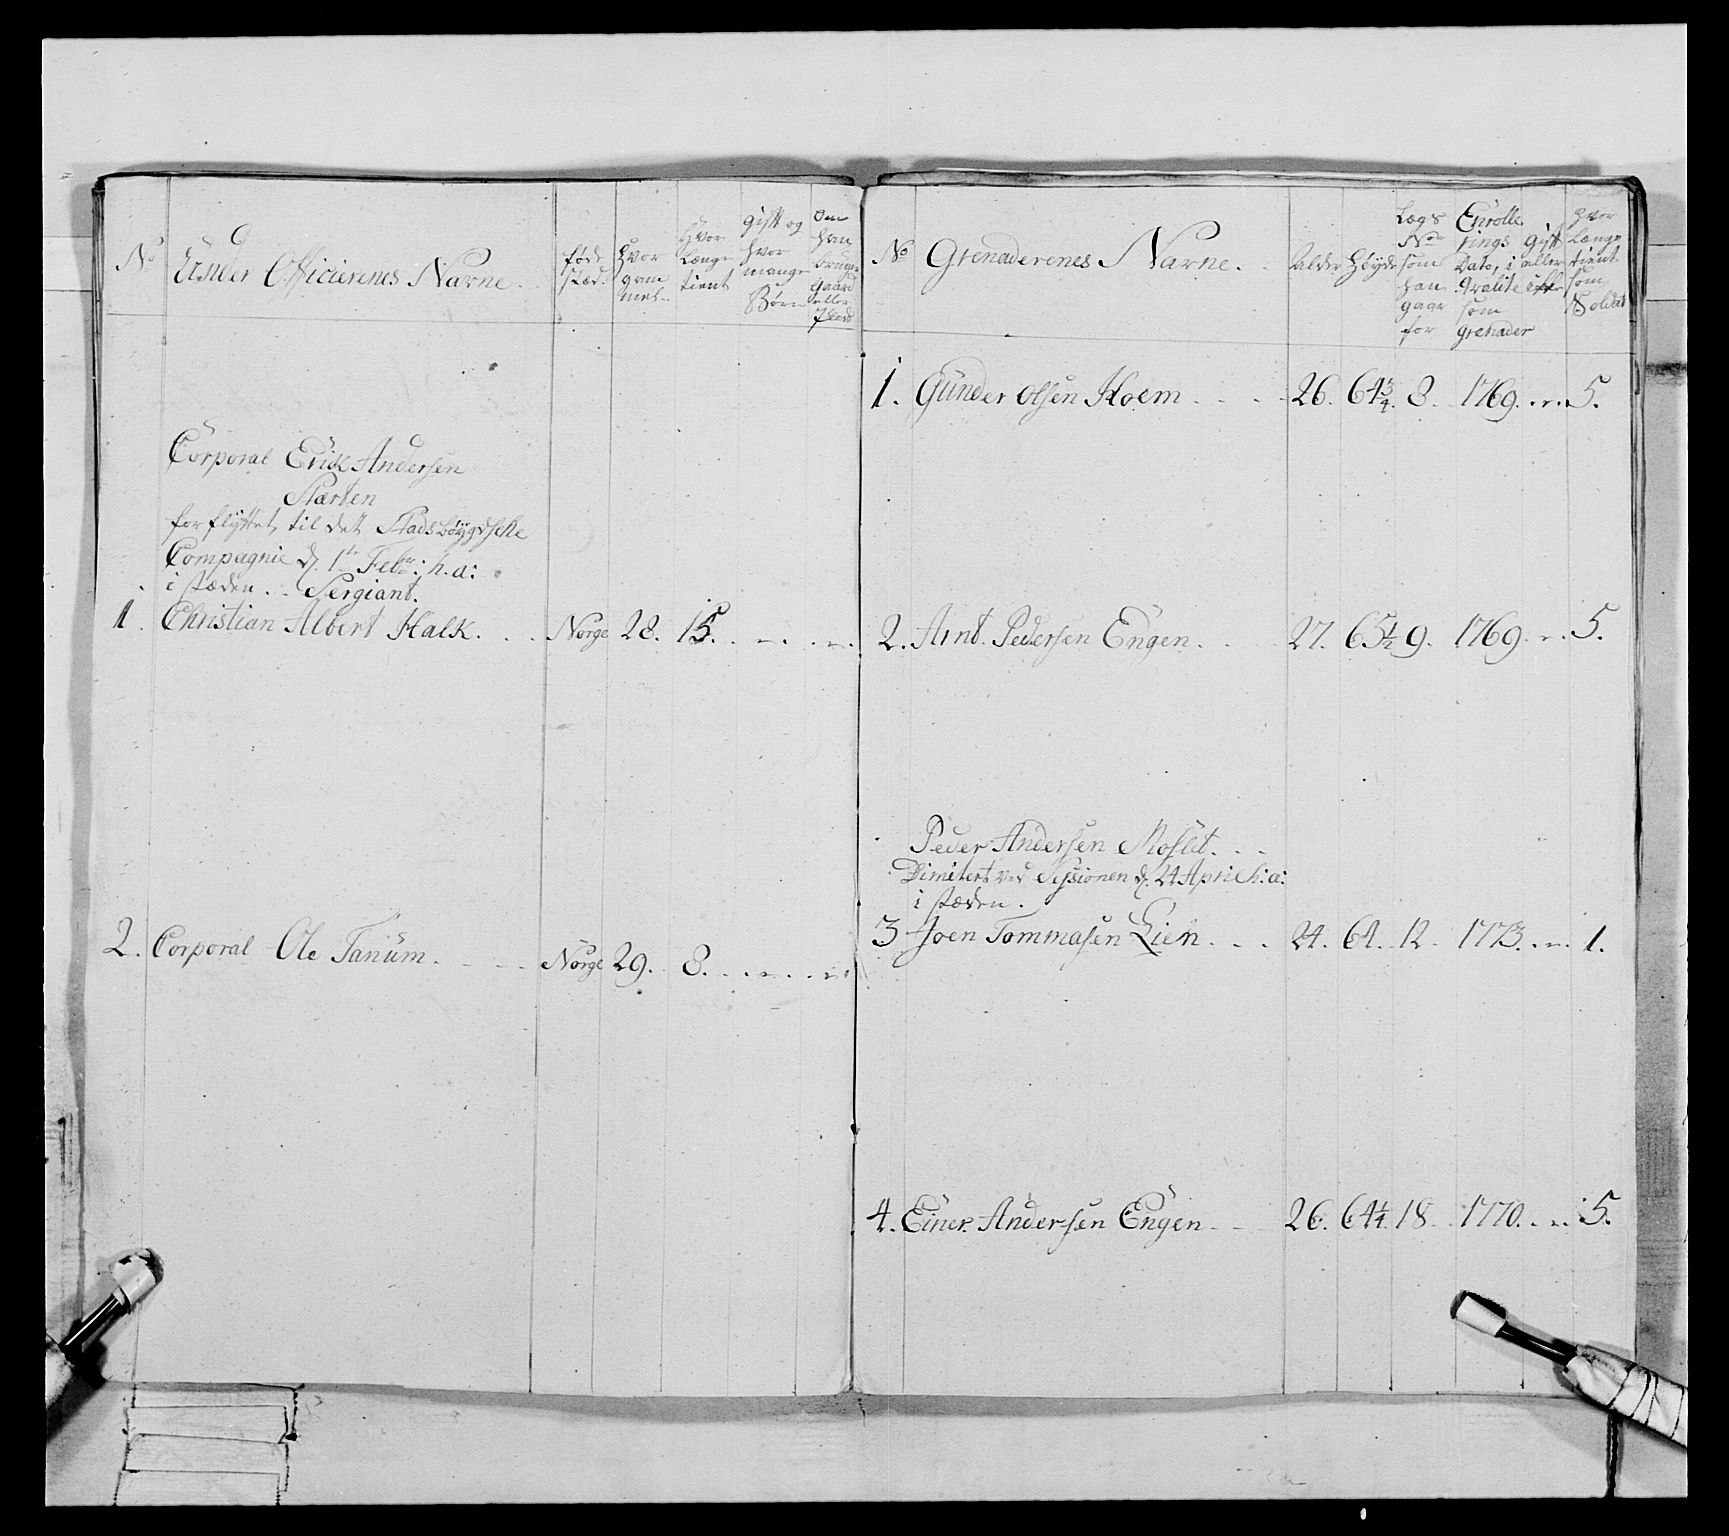 No
Under Officierenes Navne.
føde stæd.
Hvor gammel
Hvor Længe tient
gift og hvor mange Børn
Om han bruger gaard eller
Corporal Erik Andersen
Størten
forflyttet til det Stadsböygdske
Compagnie d. 1te Febr: h. a:
i stæden. . Sergiant.
1. Christian Albert Halk. . . Norge 28. 15.
2. Corporal Ole Tanüm. Norge 29. 8.
No
Grenaderenes Navne.
alder
Høyde
Lægs No som han gaar for
Enrolle rings Dato, i Qvalité som grenader
Gift eller
hvor Længe tient som Soldat
1. Günder Olsen Hoem 26. 64 3/4. 8. 1769. 5.
2. Arnt Pedersen Engen. 27. 65 1/2 9. 1769. 5.
Peder Andersen Moslet.
Dimitert ved Sessionen d. 24 April h: a:
i stæden.
3 Joen Tommasen Lien. 24. 64. 12. 1773. 1.
4. Einer Andersen Engen 26. 64 1/4 18. 1770. 5.